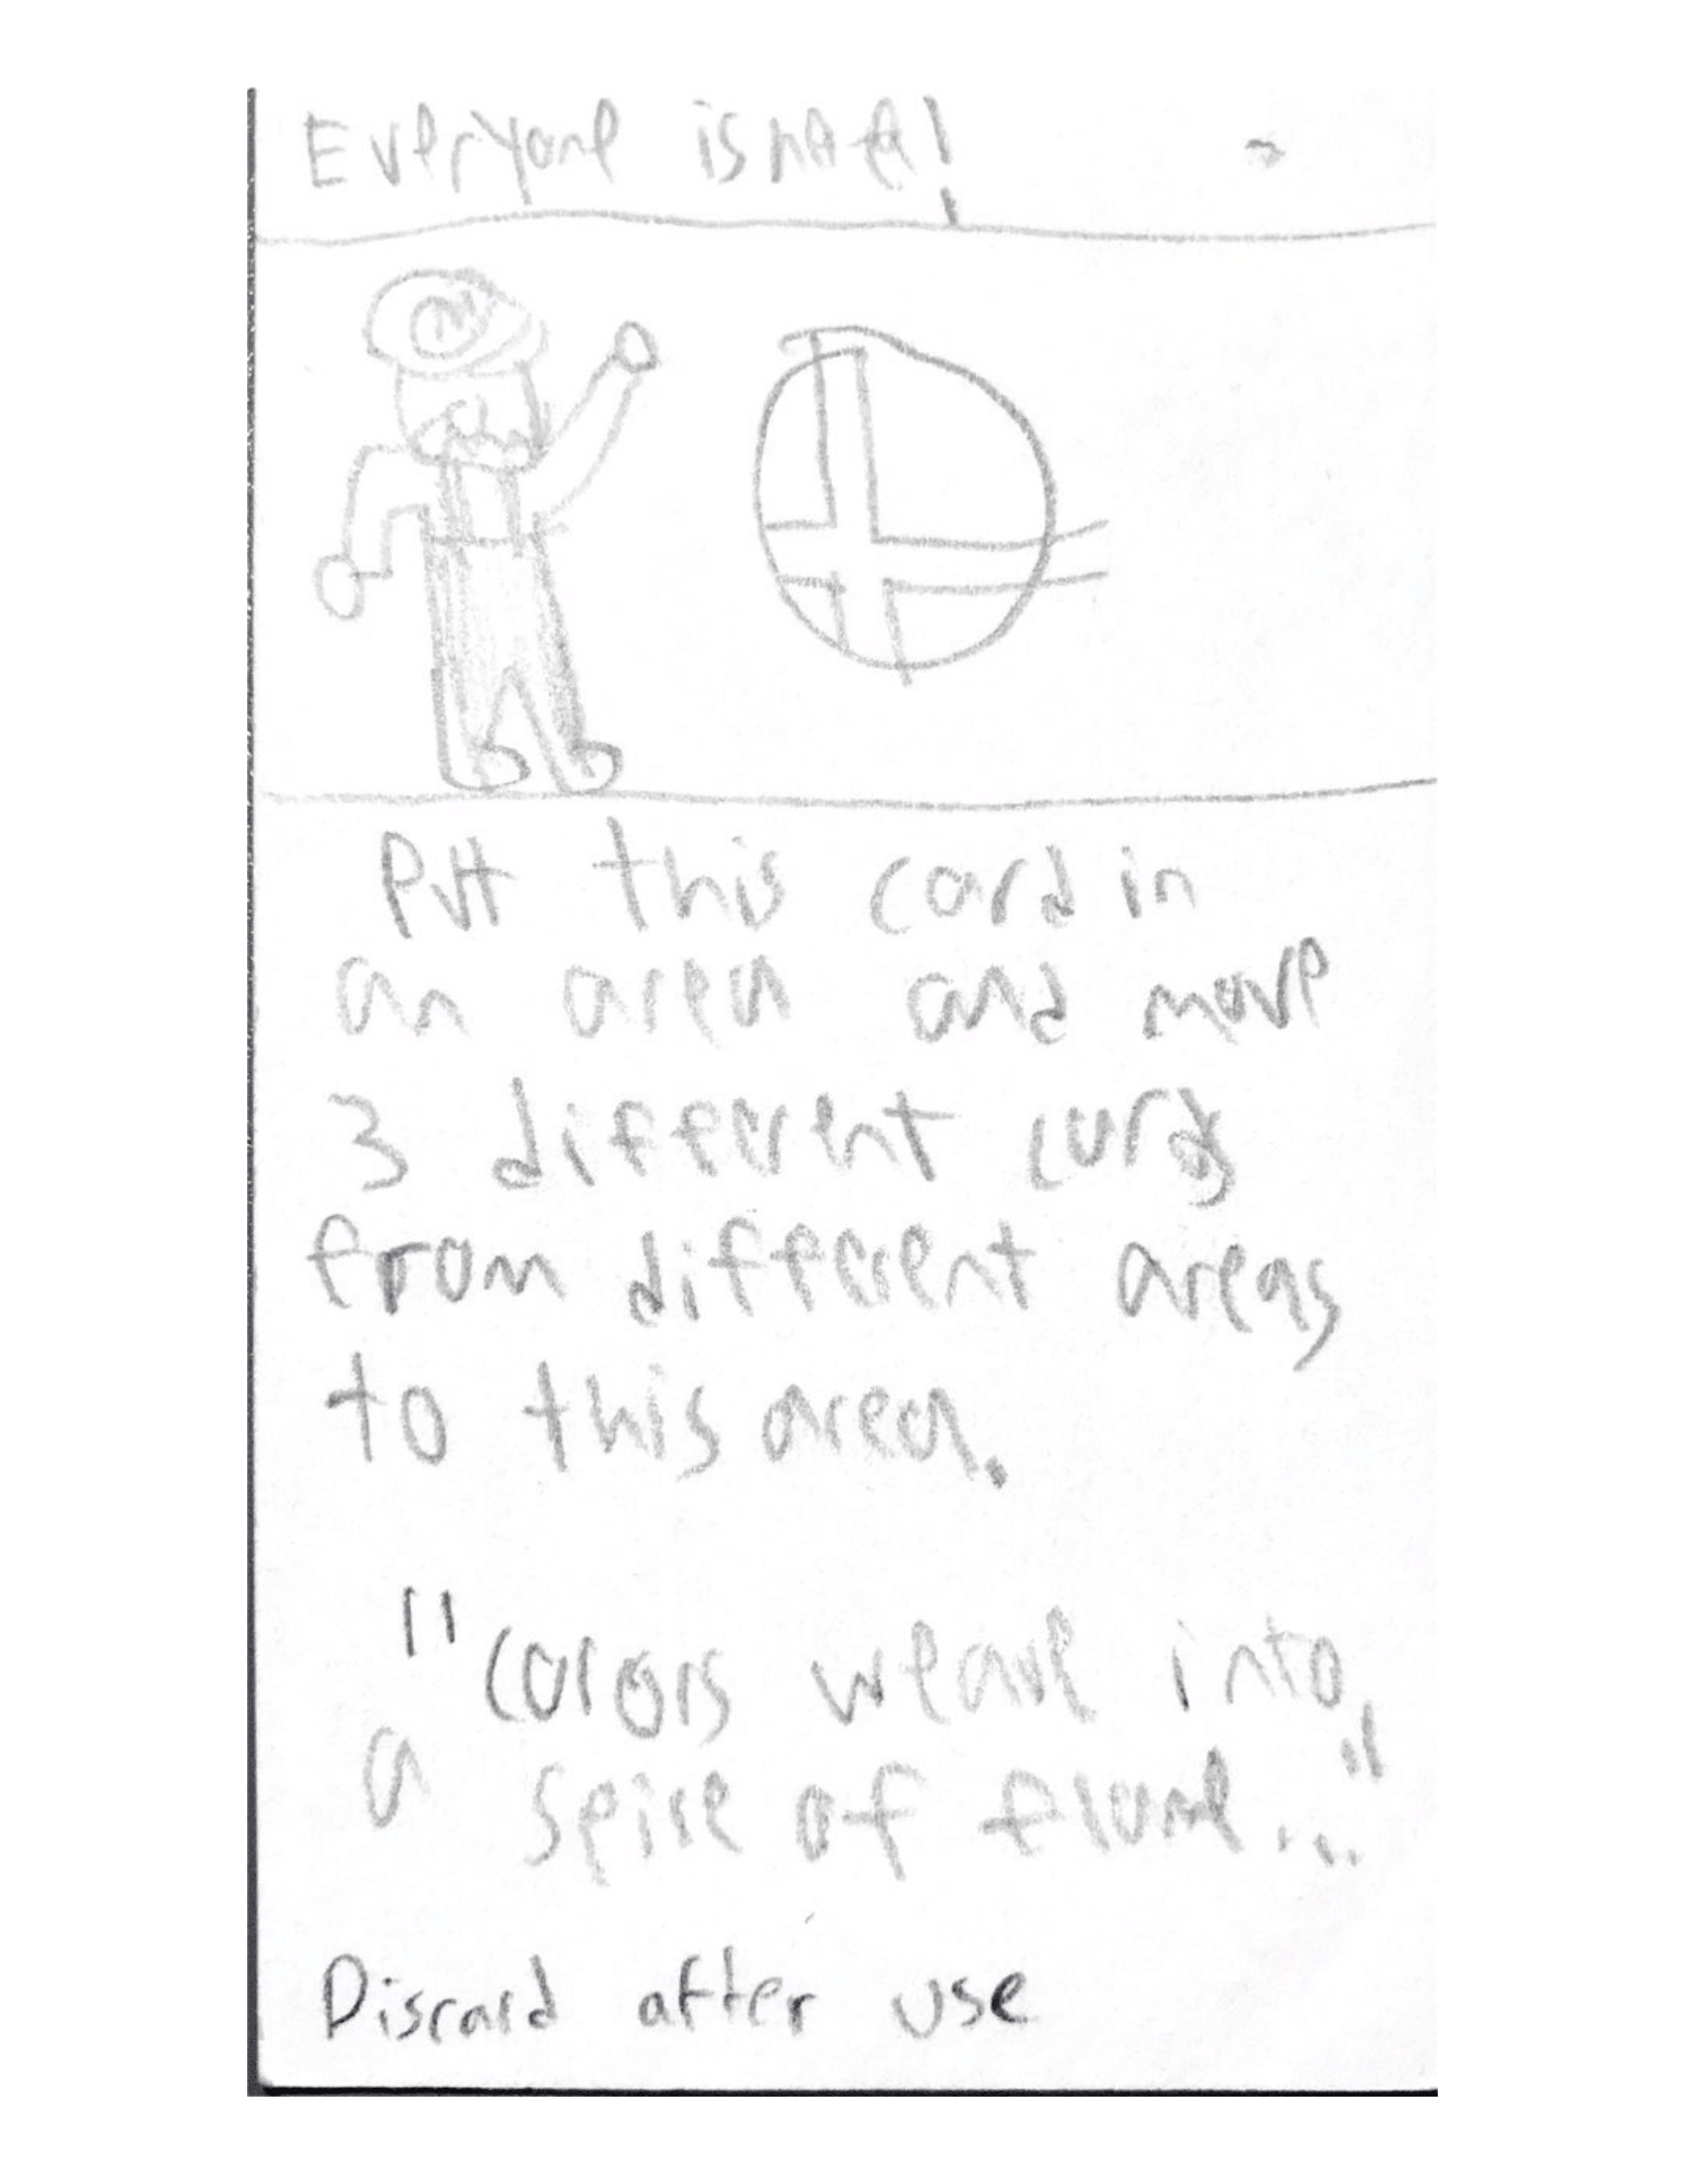 Everyone is here!
M
Putt this card in
an area and move
3 different cards
from different areas
to this area.
"Colors weave into
a spire of flame..."
Discard after use